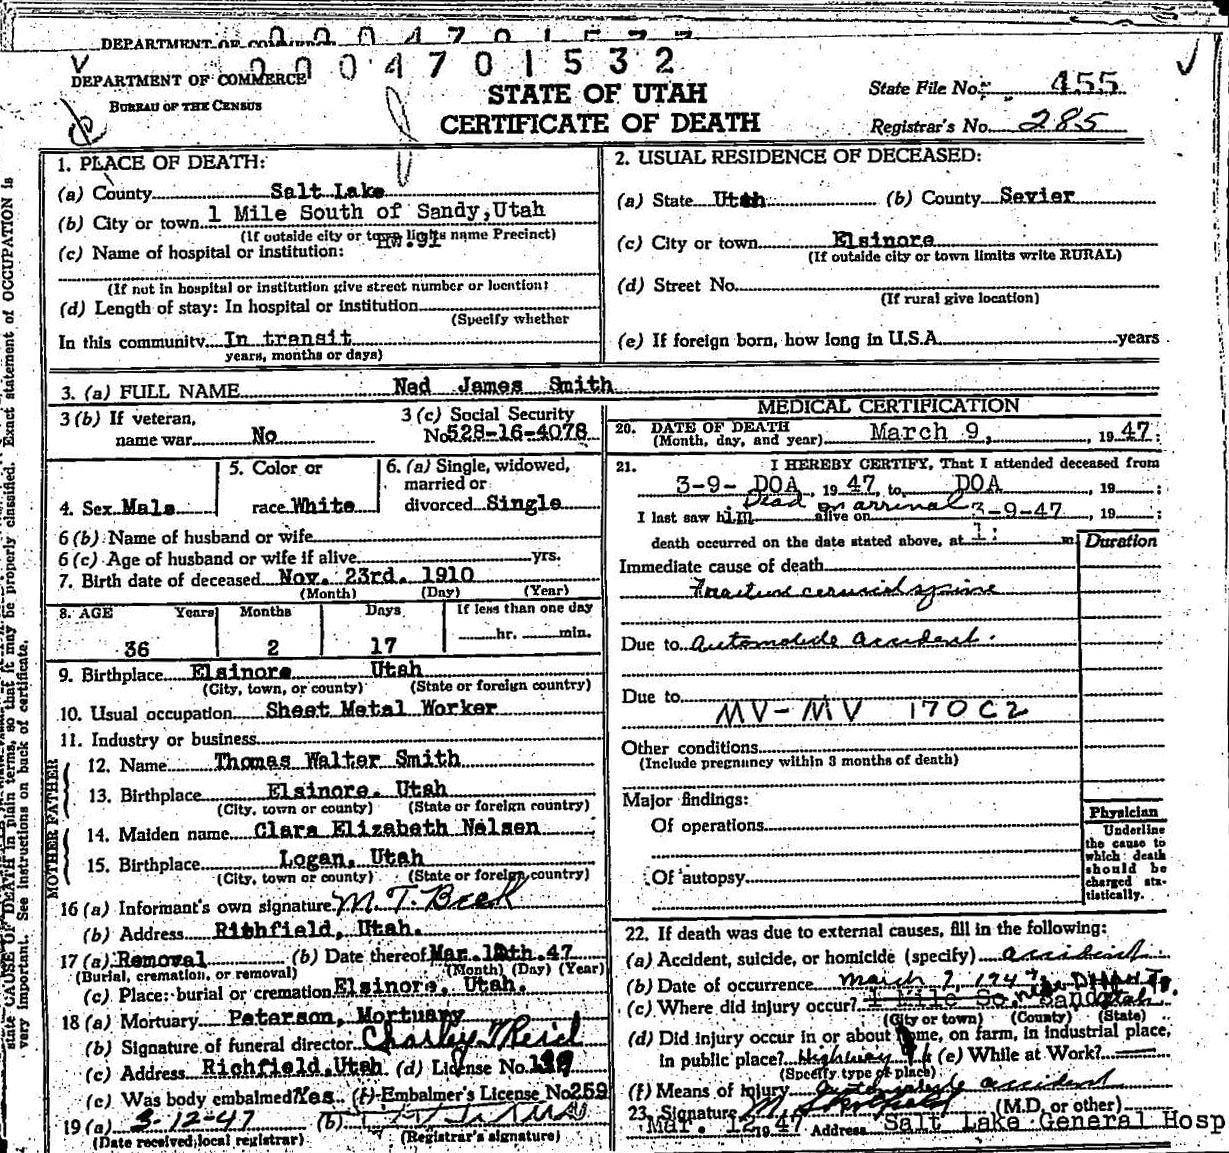 DEPARTMENT OF COMMERCE
0 0 0 4 7 0 1 5 3 2
DEPARTMENT OF COMMERCE
BUREAU OF THE CENSUS
STATE OF UTAH
CERTIFICATE OF DEATH
State File No. 455
Registrar's No. 285
1. PLACE OF DEATH:
(a) County Salt Lake
(b) City or town 1 Mile South of Sandy, Utah
(If outside city or town limits name Precinct)
HW. 91
(c) Name of hospital or institution:
(If not in hospital or institution give street number or location)
(d) Length of stay: In hospital or institution
(Specify whether
In this community In transit
years, months or days)
2. USUAL RESIDENCE OF DECEASED:
(a) State Utah (b) County Sevier
(c) City or town Elsinore
(If outside city or town limits write RURAL)
(d) Street No.
(If rural give location)
(e) If foreign born, how long in U.S.A. years
3. (a) FULL NAME Ned James Smith
3 (b) If veteran,
name war No
3 (c) Social Security
No 528-16-4078
4. Sex Male
5. Color or
race White
6. (a) Single, widowed,
married or
divorced Single
6 (b) Name of husband or wife
6 (c) Age of husband or wife if alive yrs.
7. Birth date of deceased Nov. 23rd. 1910
(Month) (Day) (Year)
8. AGE Years Months Days If less than one day
36 2 17 hr. min.
9. Birthplace Elsinore Utah
(City, town, or county) (State or foreign country)
10. Usual occupation Sheet Metal Worker
11. Industry or business
FATHER
12. Name Thomas Walter Smith
13. Birthplace Elsinore, Utah
(City, town or county) (State or foreign country)
MOTHER
14. Maiden name Clara Elizabeth Nelsen
15. Birthplace Logan, Utah
(City, town or county) (State or foreign country)
16 (a) Informant's own signature M. T. Beck
(b) Address Rithfield, Utah.
17 (a) Removal (b) Date thereof Mar. 12th. 47
(Burial, cremation, or removal) (Month) (Day) (Year)
(c) Place: burial or cremation Elsinore, Utah.
18 (a) Mortuary Peterson, Mortuary
(b) Signature of funeral director Charley Reid
(c) Address Richfield, Utah (d) License No.
(e) Was body embalmed Yes (f) Embalmer's License No 259
19 (a) 3-12-47 (b)
(Date received local registrar) (Registrar's signature)
MEDICAL CERTIFICATION
20. DATE OF DEATH
(Month, day, and year) March 9, , 19 47;
21. I HEREBY CERTIFY, That I attended deceased from
3-9- DOA , 19 47, to DOA , 19 ;
Dead on arrival
I last saw him alive on 3-9-47 , 19 ;
death occurred on the date stated above, at 1: m
Duration
Immediate cause of death
Fracture cervical spine
Due to Automobile accident.
Due to
MV-MV 170C2
Other conditions
(Include pregnancy within 3 months of death)
Major findings:
Of operations
Of autopsy
Physician
Underline
the cause to
which death
should be
charged sta-
tistically.
22. If death was due to external causes, fill in the following:
(a) Accident, suicide, or homicide (specify) accident
(b) Date of occurrence March 9, 1947
(c) Where did injury occur? 1 Mile So. Sandy Utah
(City or town) (County) (State)
(d) Did injury occur in or about home, on farm, in industrial place,
in public place? Highway 91 (e) While at Work?
(Specify type of place)
(f) Means of injury automobile accident
23. Signature M. (M.D. or other)
Mar. 12 19 47 Address Salt Lake General Hosp
state CAUSE OF DEATH in plain terms, so that it may be properly classified. Exact statement of OCCUPATION is
very important. See instructions on back of certificate.